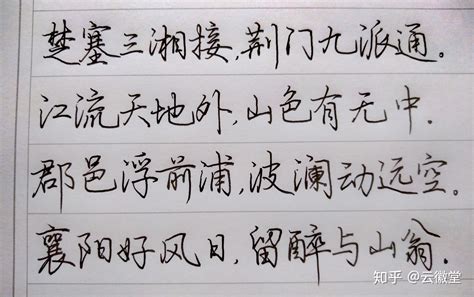 楚塞三湘接,荆门九派通。
江流天地外,山色有无中.
郡邑浮前浦,波澜动远空。
襄阳好风日,留醉与山翁。
知乎 @云徽堂